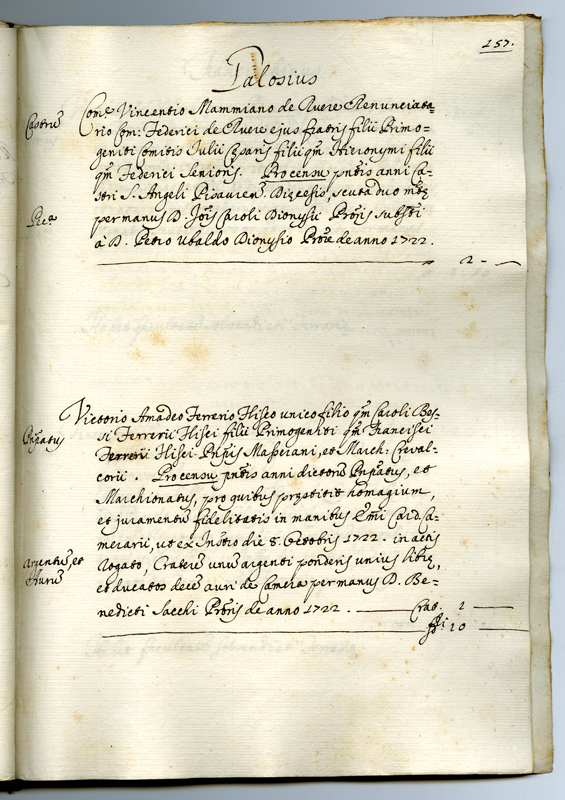 157.
Palosius
Castrũ
Com: Vincentio Mammiano de Ruere Renunciata=
rio Com: Federici de Ruere ejus fratris filii Primo=
geniti Comitis Iulii Cęsaris filii qm̃ Hieronymi filii
qm̃ Federici Senioris. Pro censu pñtis anni Ca=
stri S. Angeli Pisaurien: Dięcesis, scuta duo mtẽ
per manus D. Joĩs Caroli Dionysii Proris substi
à D. Petro Ubaldo Dionysio Prore de anno 1722.
2 -
Victorio Amadeo Ferrerio Flisco unico filio qm̃ Caroli Bes=
Pnpatus
si Ferrerii Flisci filii Primogeniti qm̃ Francisci
Ferrerii Flisci Pnpis Masserani, et March: Creval=
corii. Pro censu pñtis anni dictorũ Pnpatus, et
Marchionatus, pro quibus pręstitit homagium,
et juramentũ fidelitatis in manibus Emi Card. Ca=
merarii, ut ex Instro die 8. Octobris 1722. in actis
Argentũ, et
Aurũ
Rogato, Craterũ unũ argenti ponderis unius librę,
et ducatos decẽ auri de Camera per manus D. Be=
nedicti Sacchi Proris de anno 1722. Crat. 1
10